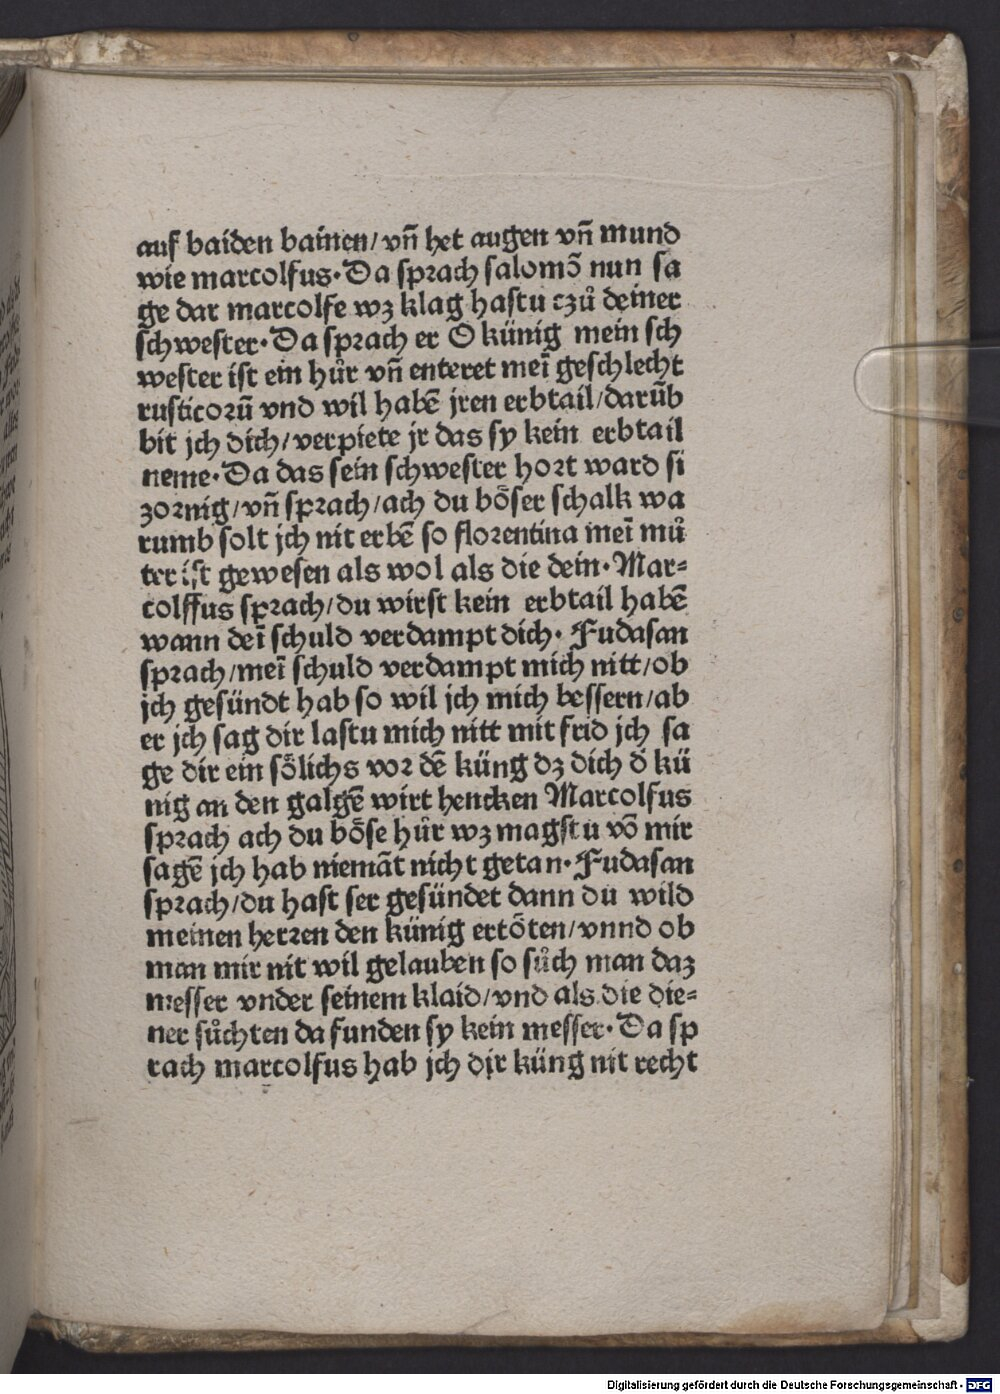 auf baiden bainen/ vn̄ het augen vn̄ mund
wie marcolfus· Da sprach salomō nun sa
ge dar marcolfe wz klag hastu czů deiner
schwester· Da sprach er O künig mein sch
wester ist ein hůr vn̄ enteret meī geschlecht
rusticorū vnd wil habē jren erbtail/ darūb
bit jch dich/ verpiete jr das sy kein erbtail
neme· Da das sein schwester hort ward si
zornig/ vn̄ sprach/ ach du böser schalk wa
rumb solt jch nit erbē so florentina meī mů
ter ist gewesen als wol als die dein· Mar=
colffus sprach/ du wirst kein erbtail habē
wann deī schuld verdampt dich· Fudasan
sprach/ meī schuld verdampt mich nitt/ ob
jch gesündt hab so wil jch mich bessern/ ab
er jch sag dir lastu mich nitt mit frid jch sa
ge dir ein sölichs vor dē küng dz dich d̄ kü
nig an den galgē wirt hencken Marcolfus
sprach ach du böse hůr wz magstu vō mir
sagē jch hab niemāt nicht getan· Fudasan
sprach/ du hast ser gesündet dann du wild
meinen herren den künig ertöten/ vnnd ob
man mir nit wil gelauben so sůch man daz
messer vnder seinem klaid/ vnd als die die=
ner sůchten da funden sy kein messer· Da sp
rach marcolfus hab jch dir küng nit recht
Digitalisierung gefördert durch die Deutsche Forschungsgemeinschaft - DFG